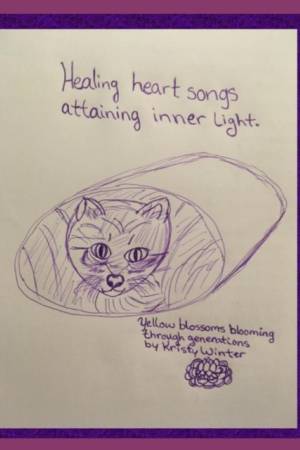 Healing heart songs
attaining inner Light.
Yellow blossoms blooming
through generations
by Kristy Winter